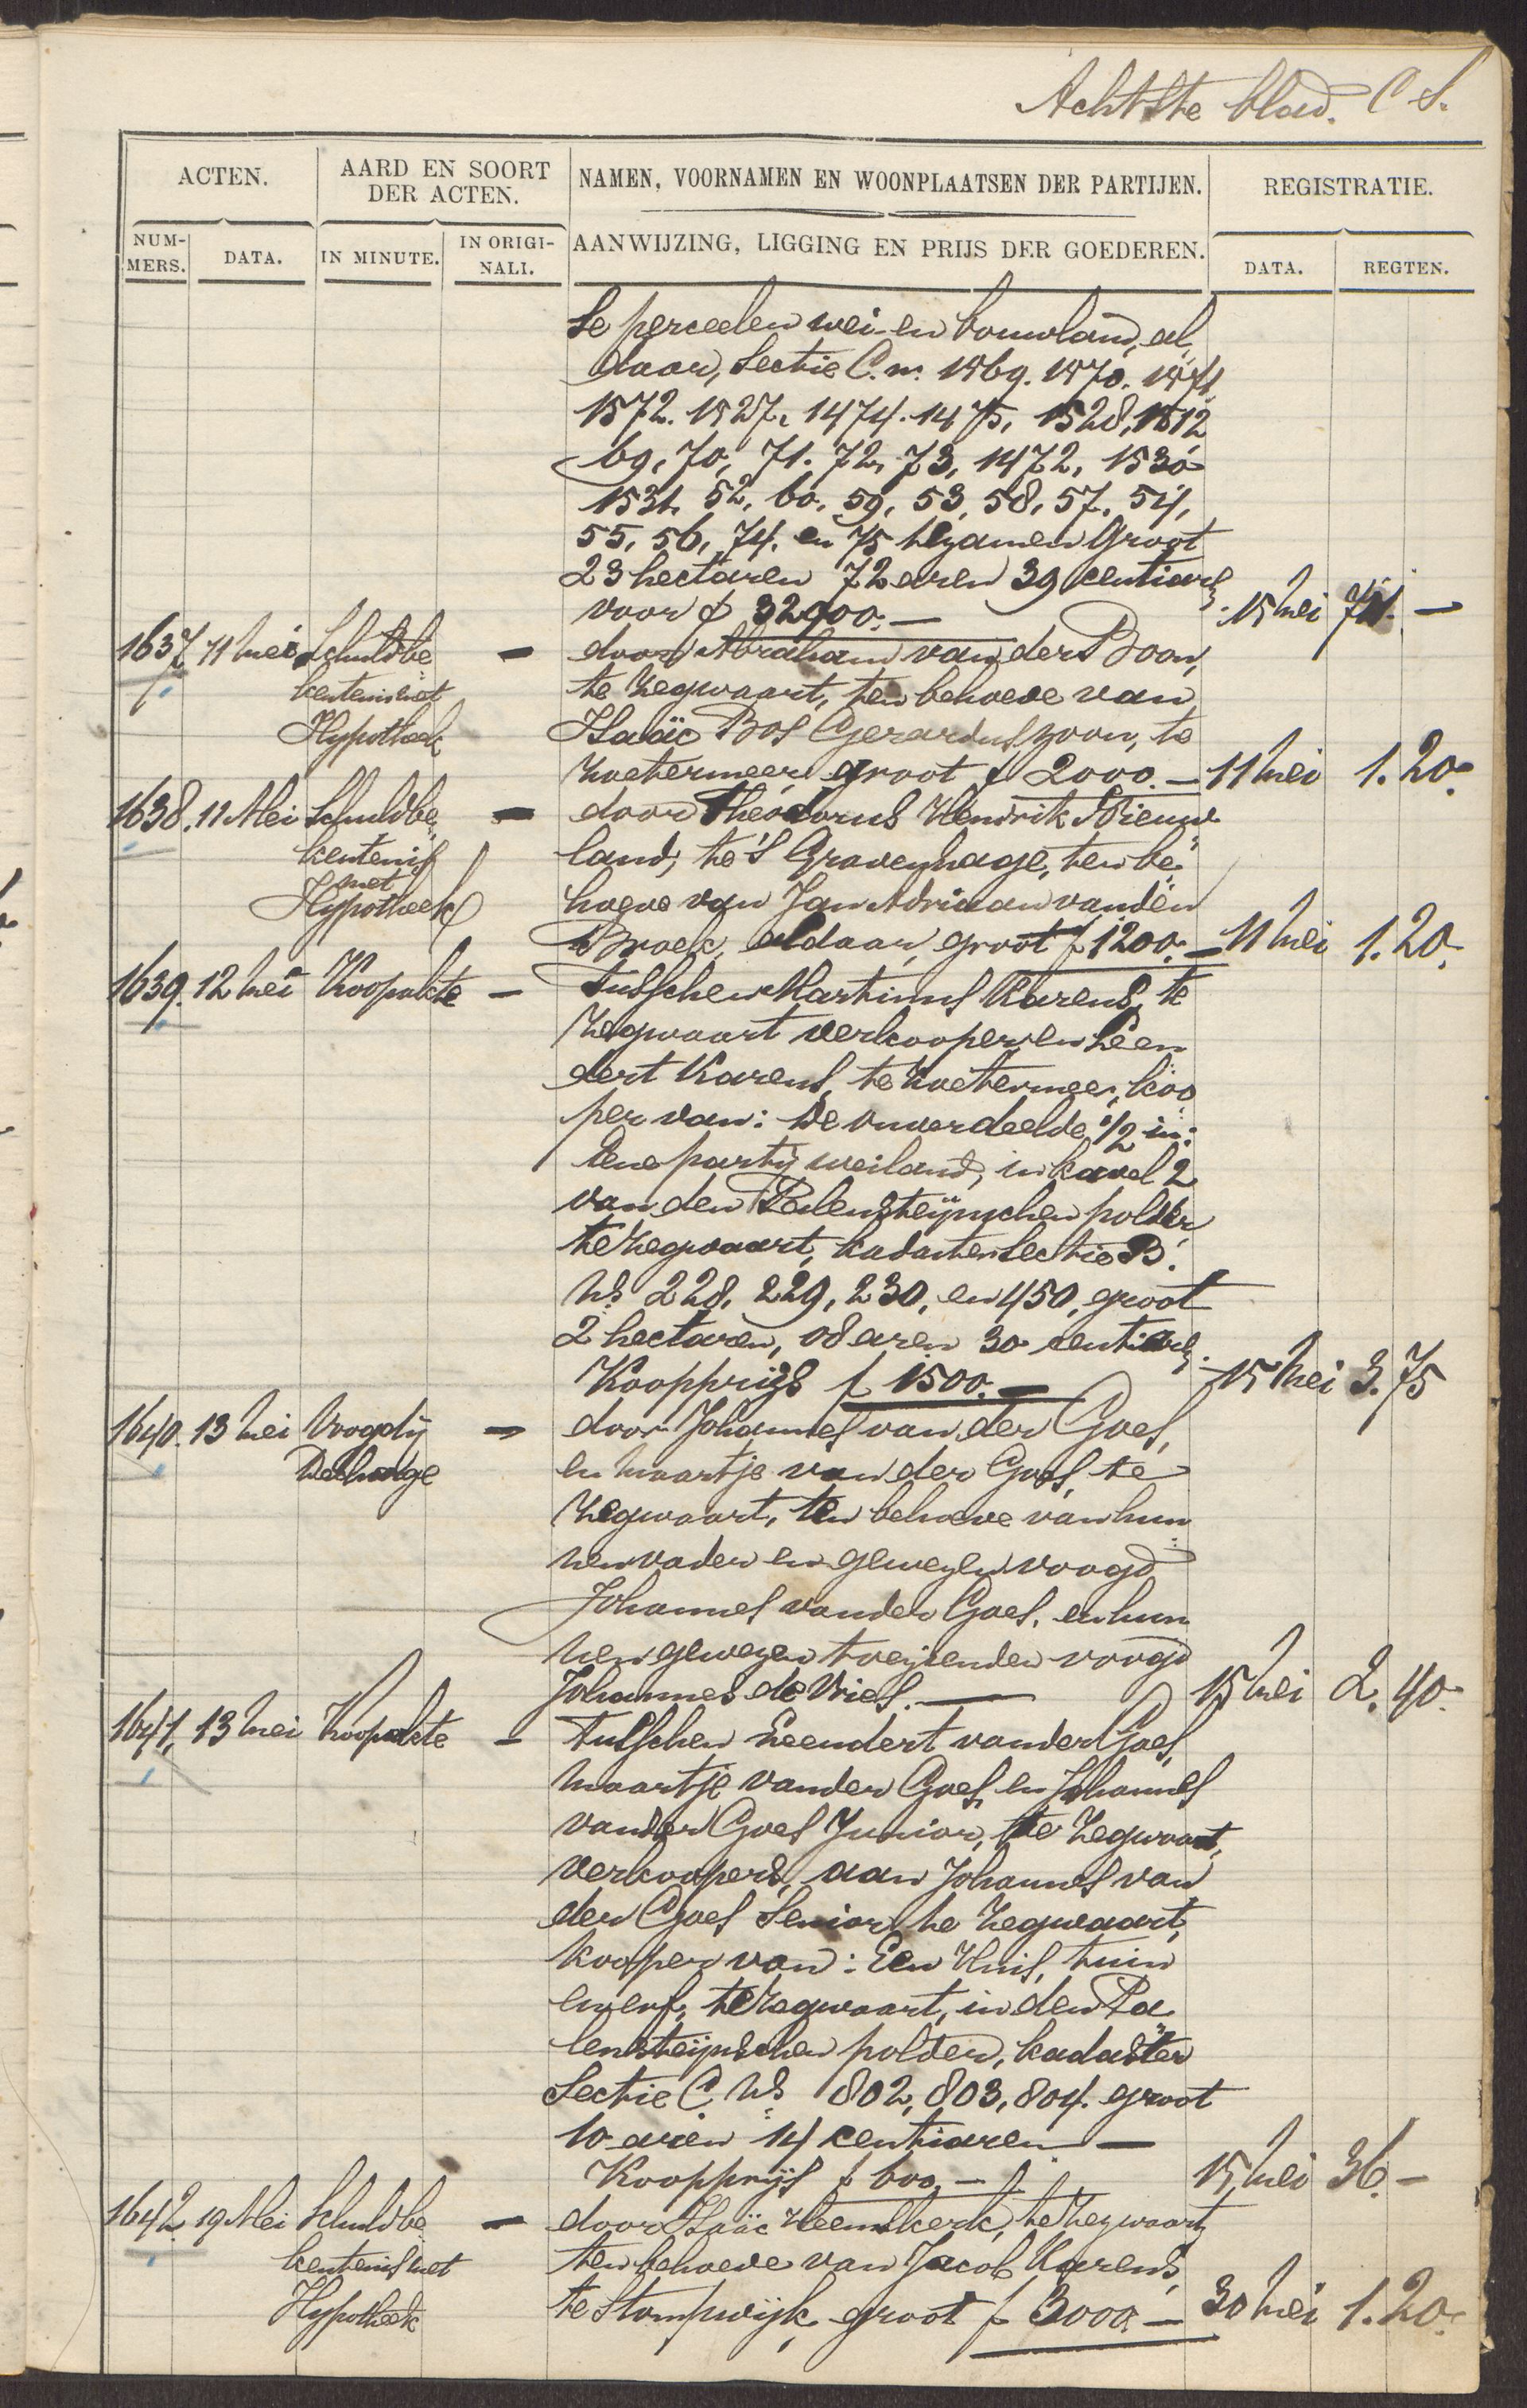 Achtste blad. C S.
ACTEN.
AARD EN SOORT
DER ACTEN.
NAMEN, VOORNAMEN EN WOONPLAATSEN DER PARTIJEN.
REGISTRATIE.
NUM-
MERS.
DATA.
IN MINUTE.
IN ORIGI-
NALI.
AANWIJZING, LIGGING EN PRIJS DER GOEDEREN.
DATA.
REGTEN.
se perceelen wei- en bouwland, al
daar, Sectie C. nr. 1569. 1570. 1571
1572. 1527. 1474. 1475, 1528, 1512
69, 70, 71. 72, 73, 1472, 1530
1531. 52, 60, 59, 53, 58, 57. 54,
55, 56, 74. en 75 tezamen Groot
23 hectaren 72 aren 39 centiaren
voor f 32900.— 15 Mei —
1637 11 Mei Schuldbe — door Abraham van der Boon,
kentenis met te Zegwaart, ten behoeve van
Hypotheek Isaäc Bos Gerarduszoon, te
Zoetermeer groot f 2000.— 11 Mei 1.20.
1638. 11 Mei Schuldbe — door Theodorus Hendrik Nieuw
kentenis land, te 's Gravenhage, ten be
met
Hypotheek hoeve van Jan Adriaan van den
Broek, aldaar, groot f 1200.— 11 Mei 1.20.
1639. 12 Mei Koopakte — Tusschen Martinus Karens, te
Zegwaart verkooper, en Leen
dert Karens, te Zoetermeer, koo
per van: De onverdeelde 1/2 in:
Eene partij weiland, in kavel 2
van den Palensteijnschen polder
te Zegwaart, kadaster Sectie B.
Ns 228, 229, 230, en 450, groot
2 hectaren, 08 aren 30 centiaren
Koopprijs f 1500.— 15 Mei 3.75
1640. 13 Mei Voogdij — door Johannes van der Goes,
Decharge en Maartje van der Goes, te
Zegwaart, ten behoeve van hun
nen vader en gewezen voogd
Johannes van der Goes, en hun
nen gewezen toezienden voogd
Johannes de Vries.— 15 Mei 2.40.
1641, 13 Mei Koopakte — Tusschen Leendert van der Goes,
Maartje van der Goes, en Johannes
van der Goes Junior, te Zegwaart,
verkoopers, aan Johannes van
der Goes Senior te Zegwaart,
kooper van: Een Huis, tuin
en erf, te Zegwaart, in den Pa
lensteijnschen polder, kadaster
Sectie C Ns 802, 803, 804. groot
10 aren 14 centiaren —
Koopprijs f 600.— 15 Mei 36.—
1642 19 Mei Schuldbe — door Isaäc Heemskerk, te Zegwaart
kentenis met ten behoeve van Jacob Karens,
Hypotheek te Stompwijk, groot f 3000.— 30 Mei 1.20.